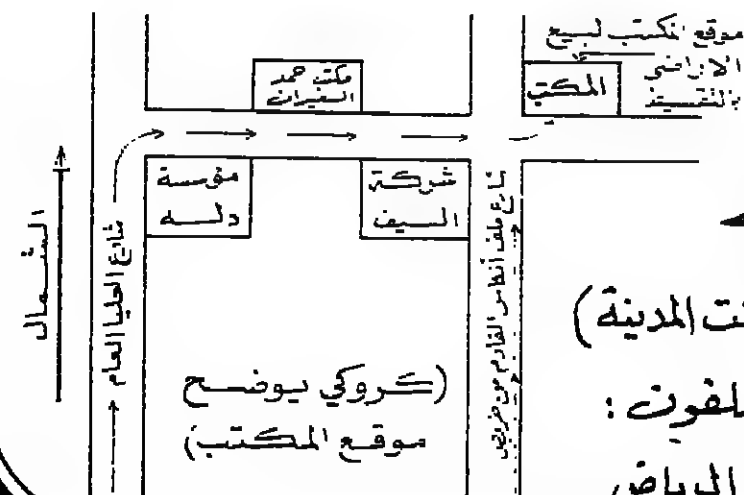 موقع المكتب لبيع
الاراضي
بالتقسيط
المكتب
مكتب حمد
السفيران
مؤسسة
دلـه
شركة
السيف
الشمال
شارع العليا العام
شارع خلف القادم من
(كروكي يوضح
موقع المكتب)
المدينة)
الرياض